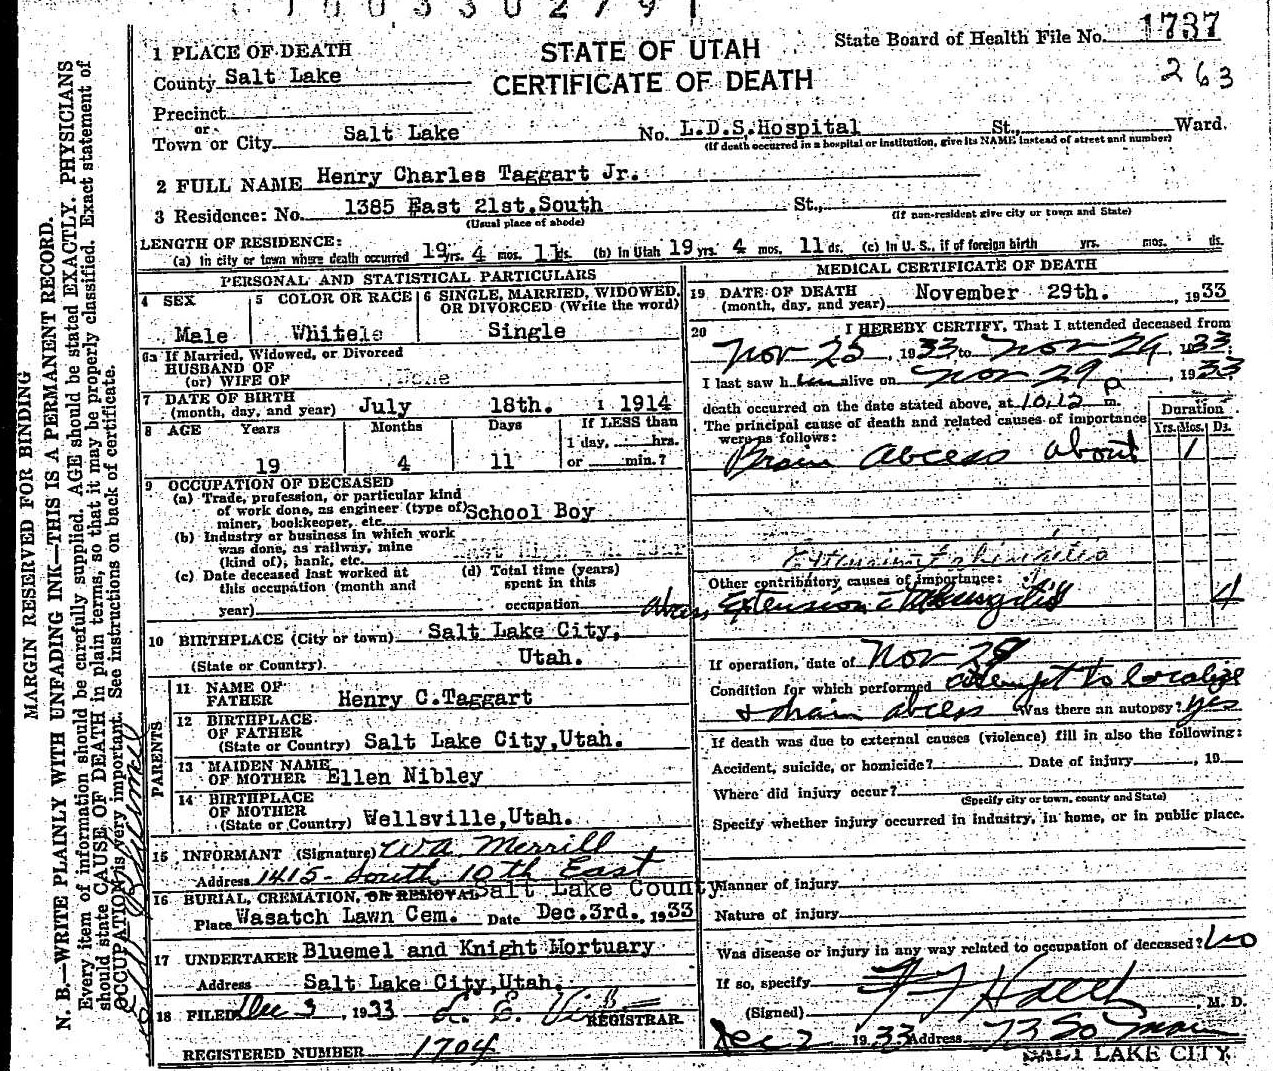 1003302791
State Board of Health File No. 1737
263
STATE OF UTAH
CERTIFICATE OF DEATH
1 PLACE OF DEATH
County Salt Lake
Precinct
or
Town or City Salt Lake No. L.D.S. Hospital St., Ward.
(If death occurred in a hospital or institution, give its NAME instead of street and number)
2 FULL NAME Henry Charles Taggart Jr.
3 Residence: No. 1385 East 21st. South St.,
(Usual place of abode) (If non-resident give city or town and State)
LENGTH OF RESIDENCE:
(a) In city or town where death occurred 19 yrs. 4 mos. 11 ds. (b) In Utah 19 yrs. 4 mos. 11 ds. (c) In U. S., if of foreign birth yrs. mos. ds.
PERSONAL AND STATISTICAL PARTICULARS
4 SEX Male
5 COLOR OR RACE White
6 SINGLE, MARRIED, WIDOWED, OR DIVORCED (Write the word)
Single
6a If Married, Widowed, or Divorced
HUSBAND OF
(or) WIFE OF None
7 DATE OF BIRTH
(month, day, and year) July 18th. 1914
8 AGE Years Months Days If LESS than
1 day, hrs.
19 4 11 or min.?
9 OCCUPATION OF DECEASED
(a) Trade, profession, or particular kind
of work done, as engineer (type of)
miner, bookkeeper, etc. School Boy
(b) Industry or business in which work
was done, as railway, mine
(kind of), bank, etc.
(c) Date deceased last worked at
this occupation (month and
year)
(d) Total time (years)
spent in this
occupation
10 BIRTHPLACE (City or town) Salt Lake City,
(State or Country) Utah.
PARENTS
11 NAME OF
FATHER Henry C. Taggart
12 BIRTHPLACE
OF FATHER
(State or Country) Salt Lake City, Utah.
13 MAIDEN NAME
OF MOTHER Ellen Nibley
14 BIRTHPLACE
OF MOTHER
(State or Country) Wellsville, Utah.
15 INFORMANT (Signature) W.A. Merrill
Address 1415- South 10th East
16 BURIAL, CREMATION, OR REMOVAL Salt Lake County
Place Wasatch Lawn Cem. Date Dec. 3rd., 1933
17 UNDERTAKER Bluemel and Knight Mortuary
Address Salt Lake City, Utah.
18 FILED Dec 3, 1933
REGISTRAR
REGISTERED NUMBER 1704
MEDICAL CERTIFICATE OF DEATH
19 DATE OF DEATH
(month, day, and year) November 29th., 1933
20 I HEREBY CERTIFY, That I attended deceased from
Nov 25, 1933 to Nov 29, 1933.
I last saw him alive on Nov 29, 1933
death occurred on the date stated above, at 10,12 p m.
The principal cause of death and related causes of importance
were as follows:
Duration
Yrs. Mos. Ds.
Brain abcess about 1
Other contributory causes of importance:
4
If operation, date of Nov 28
Condition for which performed attempt to localize
& drain abcess Was there an autopsy? Yes
If death was due to external causes (violence) fill in also the following:
Accident, suicide, or homicide? Date of injury , 19
Where did injury occur?
(Specify city or town, county and State)
Specify whether injury occurred in industry, in home, or in public place.
Manner of injury
Nature of injury
Was disease or injury in any way related to occupation of deceased? No
If so, specify
(Signed) M. D.
Dec 2 1933 Address 73 So Main
SALT LAKE CITY
MARGIN RESERVED FOR BINDING
N. B.—WRITE PLAINLY WITH UNFADING INK—THIS IS A PERMANENT RECORD.
Every item of information should be carefully supplied. AGE should be stated EXACTLY. PHYSICIANS
should state CAUSE OF DEATH in plain terms, so that it may be properly classified. Exact statement of
OCCUPATION is very important. See instructions on back of certificate.